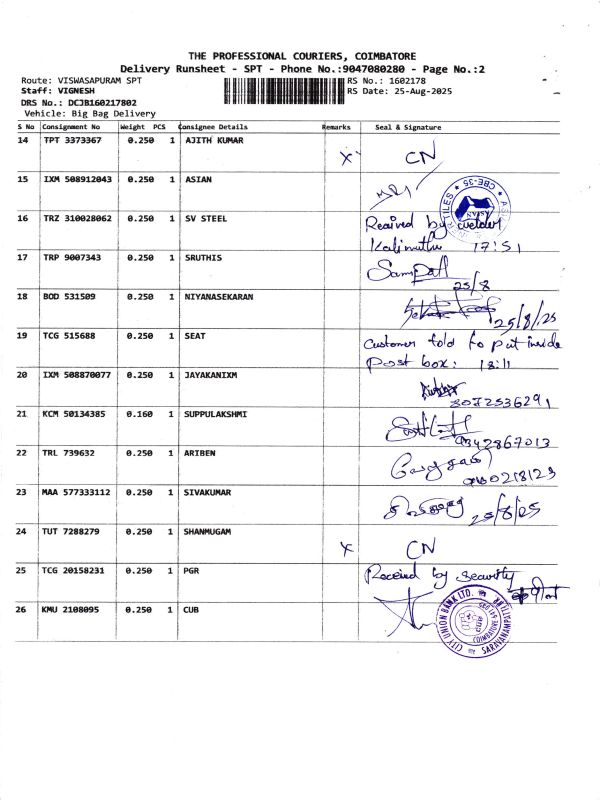 THE PROFESSIONAL COURIERS, COIMBATORE
Delivery Runsheet - SPT - Phone No.:9047080280 - Page No.:2
Route: VISWASAPURAM SPT RS No.: 1602178
Staff: VIGNESH RS Date: 25-Aug-2025
DRS No.: DCJB160217802
Vehicle: Big Bag Delivery
S No Consignment No Weight PCS Consignee Details Remarks Seal & Signature
14 TPT 3373367 0.250 1 AJITH KUMAR
X CN
15 IXM 508912043 0.250 1 ASIAN
CBE-35
ASIAN
16 TRZ 310028062 0.250 1 SV STEEL
Received by welder
Kalimuthu 17:51
17 TRP 9007343 0.250 1 SRUTHIS
Sampath
25/8
18 BOD 531509 0.250 1 NIYANASEKARAN
25/8/25
19 TCG 515688 0.250 1 SEAT
Customer told to put inside
post box: 18:11
20 IXM 508870077 0.250 1 JAYAKANIXM
8072536291
21 KCM 50134385 0.160 1 SUPPULAKSHMI
9342867013
22 TRL 739632 0.250 1 ARIBEN
23 MAA 577333112 0.250 1 SIVAKUMAR
25/8/25
24 TUT 7288279 0.250 1 SHANMUGAM
X CN
25 TCG 20158231 0.250 1 PGR
Received by security
26 KMU 2108095 0.250 1 CUB
CITY UNION BANK LTD.
COIMBATORE 641035
SARAVANAMPATTI BR.